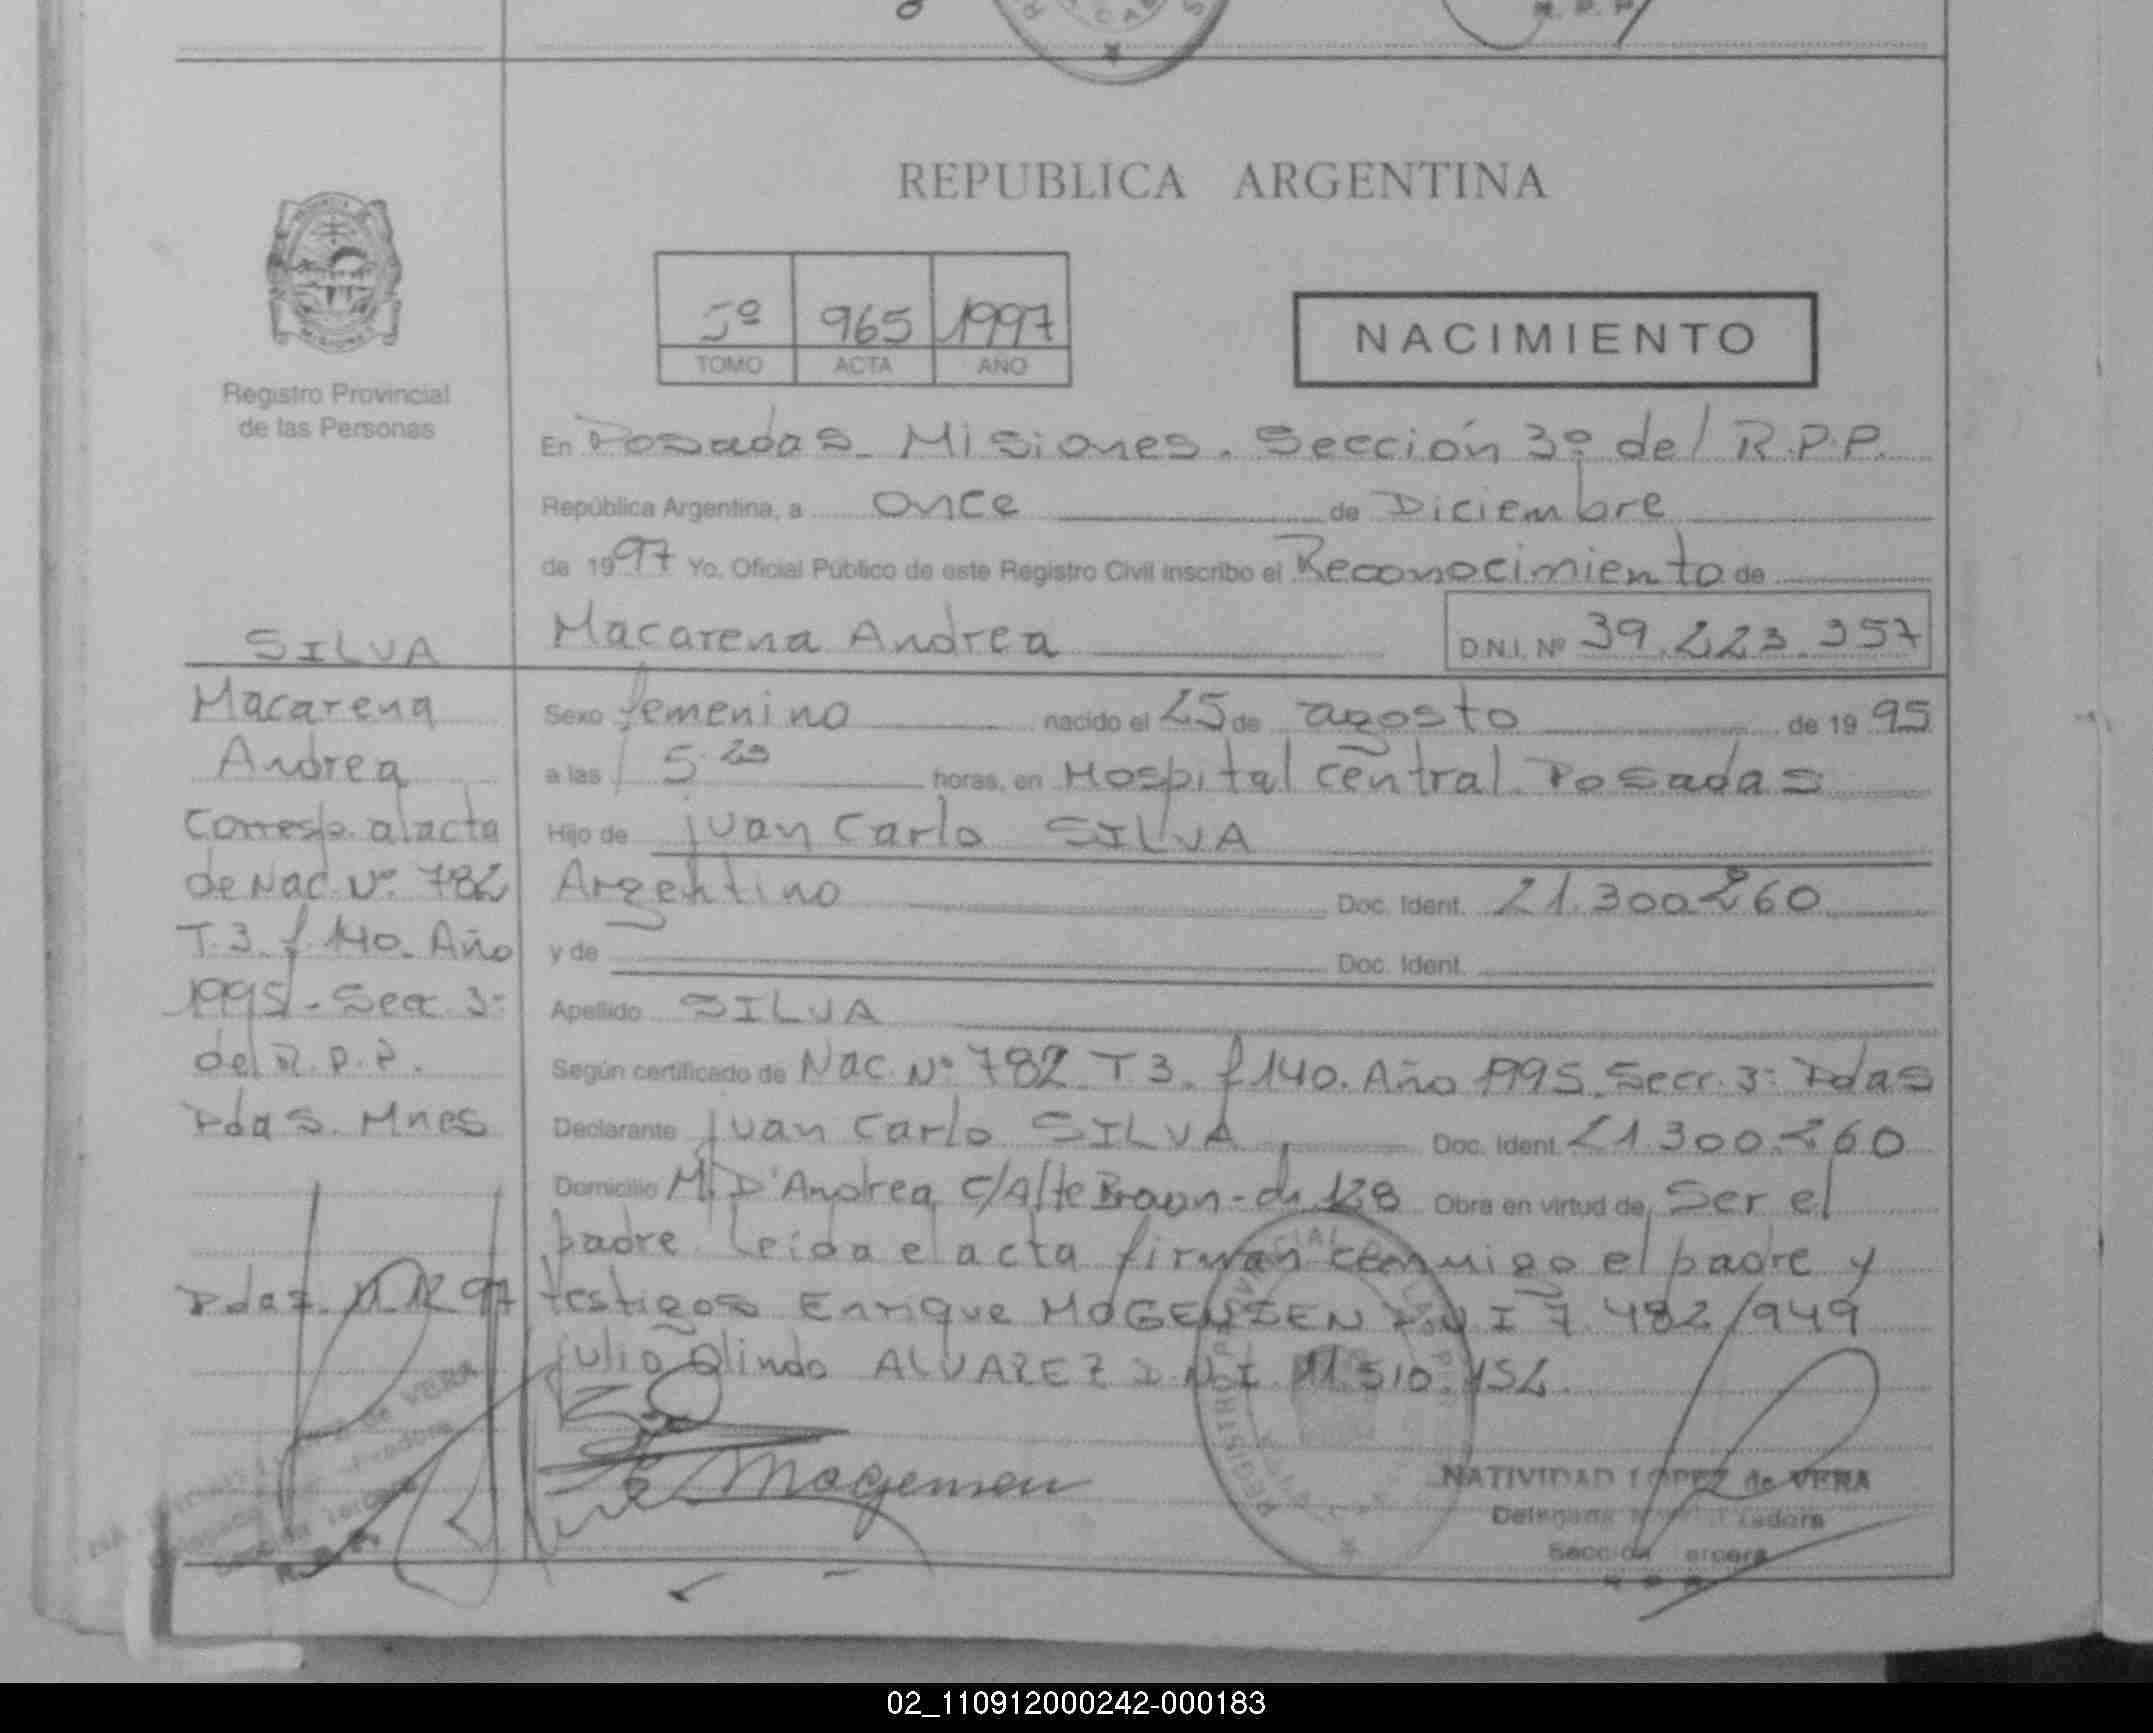 REPUBLICA ARGENTINA
5º 965 1997
TOMO ACTA AÑO
NACIMIENTO
Registro Provincial
de las Personas
En Posadas. Misiones. Sección 3º del R.P.P.
República Argentina, a once de Diciembre
de 1997 Yo, Oficial Público de este Registro Civil inscribo el Reconocimiento de
Macarena Andrea D.N.I. Nº 39.223.357
Sexo femenino nacido el 25 de agosto de 1995
a las horas, en Hospital central. Posadas
Hijo de Juan Carlo SILVA
Argentino Doc. Ident. 21.300.260
y de Doc. Ident.
Apellido SILVA
Según certificado de Nac. Nº 782 T.3. f 140. Año 1995. Secc. 3: Pdas
Declarante Juan Carlo SILVA Doc. Ident. 21.300.260
Domicilio M. D'Andrea c/Alte Brown - 128 Obra en virtud de Ser el
padre. Leída el acta firman conmigo el padre y
testigos Enrique MOGENSEN D.N.I 7.482.949
Julio Olindo ALVAREZ D.N.I. 11.510.152
Mogensen
NATIVIDAD LOPEZ de VERA
Sección Tercera
SILVA
Macarena
Andrea
Corresp. al acta
de Nac. Nº. 782
T.3. f. 140. Año
1995. - Secc. 3:
del R.P.P.
Pdas. Mnes
Pdas. 11.12.97
de VERA
02_110912000242-000183